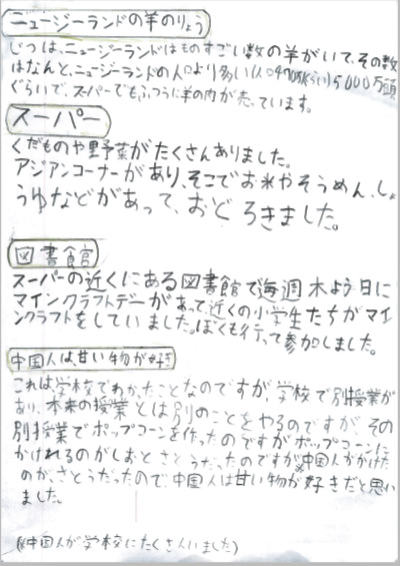 ニュージーランドの羊のりょう
じつは、ニュージーランドはものすごい数の羊がいて、その数
はなんと、ニュージーランドの人口より多い(人口470万人くらい)5000万頭
ぐらいで、スーパーでもふつうに羊の肉が売っています。
スーパー
くだものや野菜がたくさんありました。
アジアンコーナーがあり、そこでお米やそうめん、しょ
うゆなどがあって、おどろきました。
図書館
スーパーの近くにある図書館で毎週木よう日に
マインクラフトデーがあって近くの小学生たちがマイ
ンクラフトをしていました。ぼくも行って参加しました。
中国人は、甘い物が好き
これは、学校でわかったことなのですが、学校で別授業が
あり、本来の授業とは別のことをやるのですが、その
別授業でポップコーンを作ったのですがポップコーンに
かけれるのがしおとさとうだったのですが中国人がかけた
のが、さとうだったので、中国人は甘い物が好きだと思い
ました。
(※中国人が学校にたくさんいました)